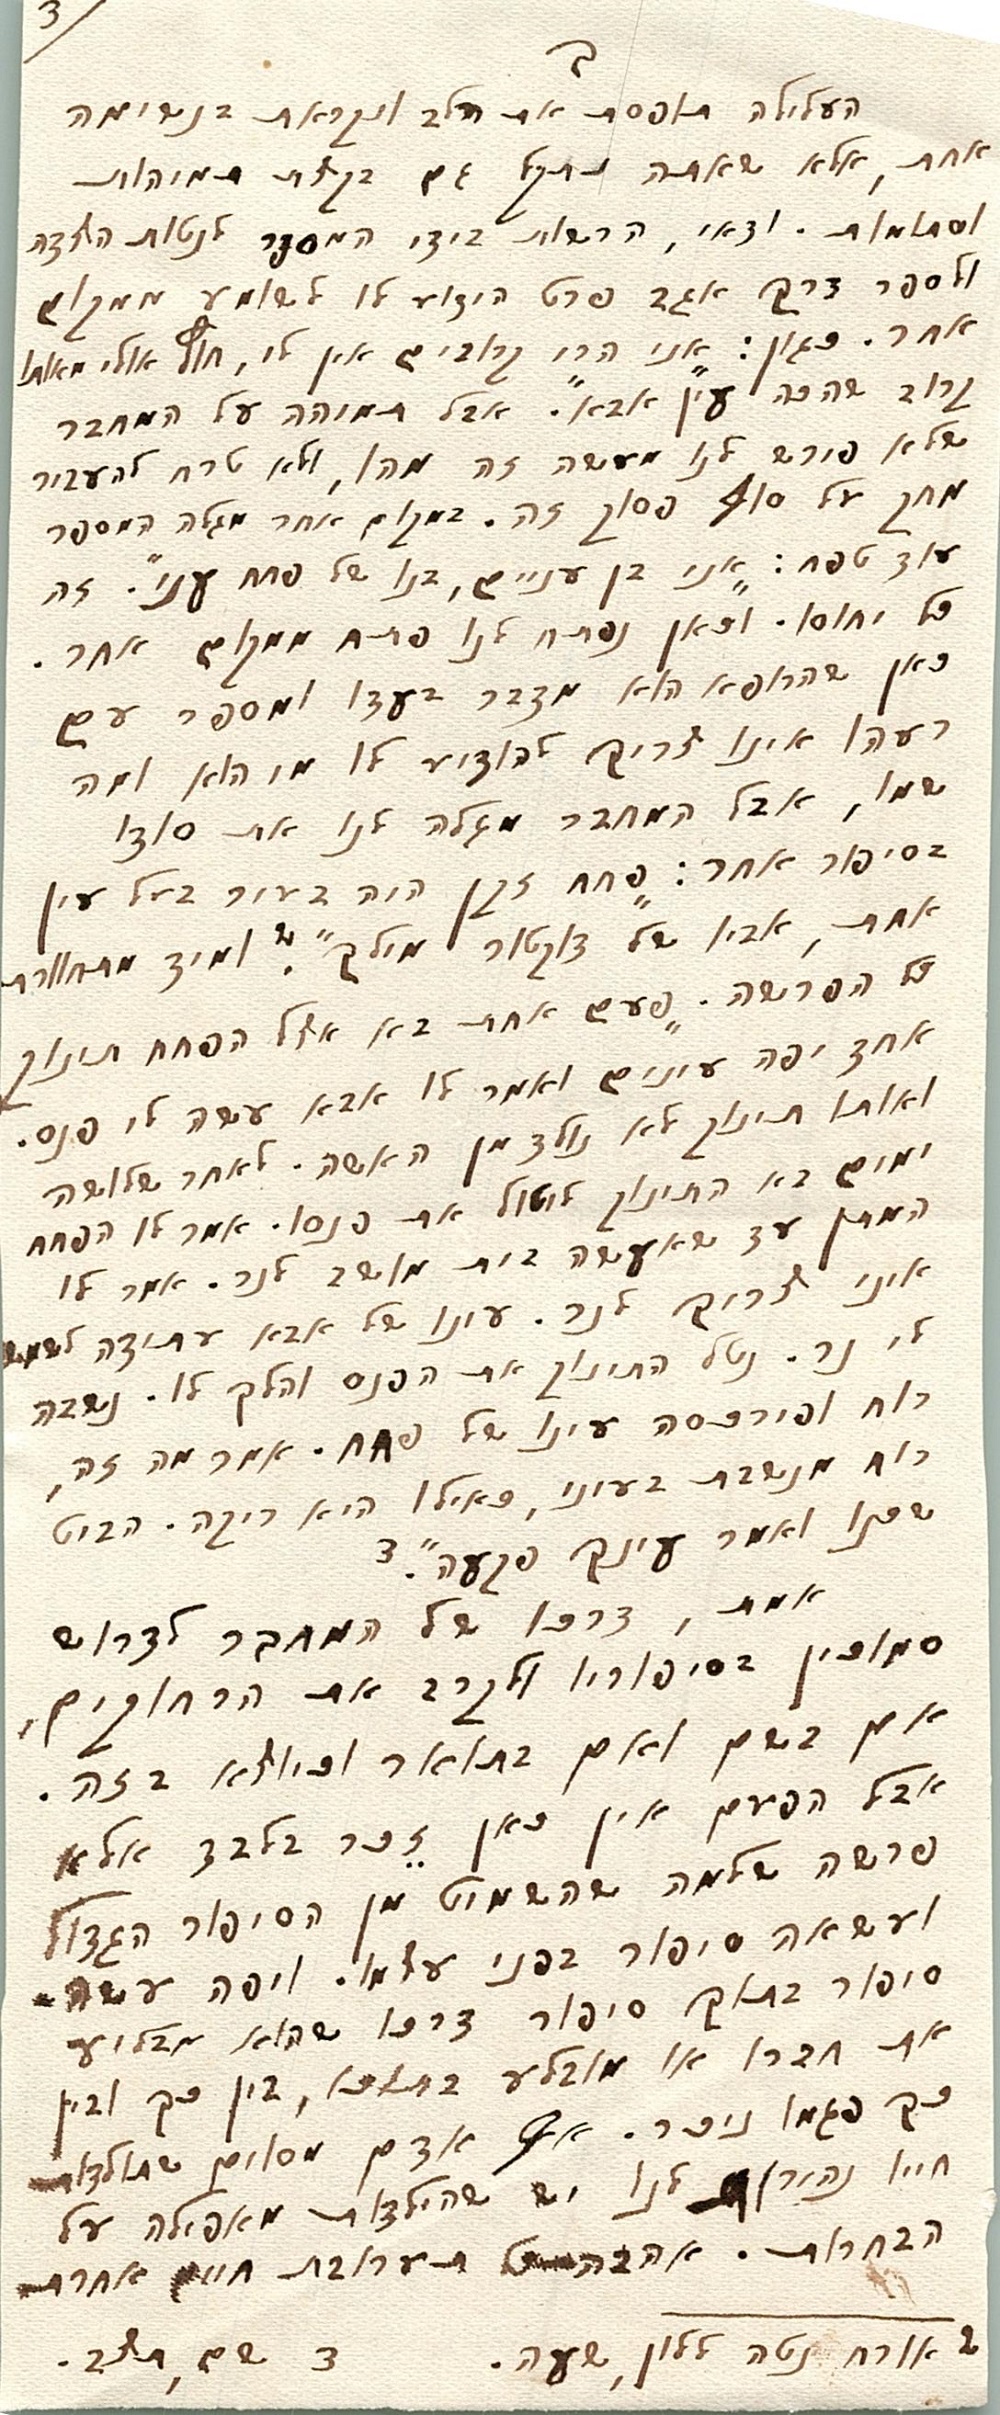 3
ב
העלילה תופסת את הלב ונקראת בנשימה
אחת, אלא שאתה נתקל גם בקצת תמיהות
וסתומות. ודאי, הרשות בידי המספר לנטות הצדה
ולספר דרך אגב פרט הידוע לו לשומע ממקום
אחר. כגון: „אני הרי קרובים אין לי, חוץ אולי מאותו
קרוב שהכה עין אבא״. אבל תמיהה על המחבר
שלא פירש לנו מעשה זה מהו, ולא טרח להעביר
מחק על סוף פסוק זה. במקום אחר מגלה המספר
עוד טפח: „אני בן עניים, בנו של פחח עני״. זה
כל יחוסו. וכאן נפתח לנו פתח ממקום אחר.
כאן שהרופא הוא מדבר בעדו ומספר עם
רעהו אינו צריך להודיע לו מי הוא ומה
שמו, אבל המחבר מגלה לנו את סודו
בסיפור אחר: „פחח זקן היה בעיר בעל עין
אחת, אביו של דוקטור מילך״.ש ומיד מתחוורת
כל הפרשה. „פעם אחת בא אצל הפחח תינוק
אחד יפה עינים ואמר לו אבא עשה לי פנס.
ואותו תינוק לא נולד מן האשה. לאחר שלושה
ימים בא התינוק ליטול את פנסו. אמר לו הפחח
המתן עד שאעשה בית מושב לנר. אמר לו
איני צריך לנר. עינו של אבא עתידה לשמש
לי נר. נטל התינוק את הפנס והלך לו. נשבה
רוח ופירכסה עינו של פחח. אמר מה זה,
רוח מנשבת בעיני, כאילו היא ריקה. הביט
שכנו ואמר עינך פקעה״.ד
אמת, דרכו של המחבר לדרוש
סמוכין בסיפוריו ולקרב את הרחוקים,
אם בשם ואם בתואר וכיוצא בזה.
אבל הפעם אין כאן זֵכר בלבד אלא
פרשה שלמה שהשמיט מן הסיפור הגדול
ועשאה סיפור בפני עצמו. ויפה עשה
סיפור בתוך סיפור דרכו שהוא מבליע
את חברו או מובלע בתוכו, בין כך ובין
כך פגמו ניכר. אף אדם מסוים שתולדות
חייו נהירין לנו יש שהילדות מאפילה על
הבחרות. אהבה של תערובת חיים אחרת
ש אורח נטה ללון, שעה.
ד שם, תצב.